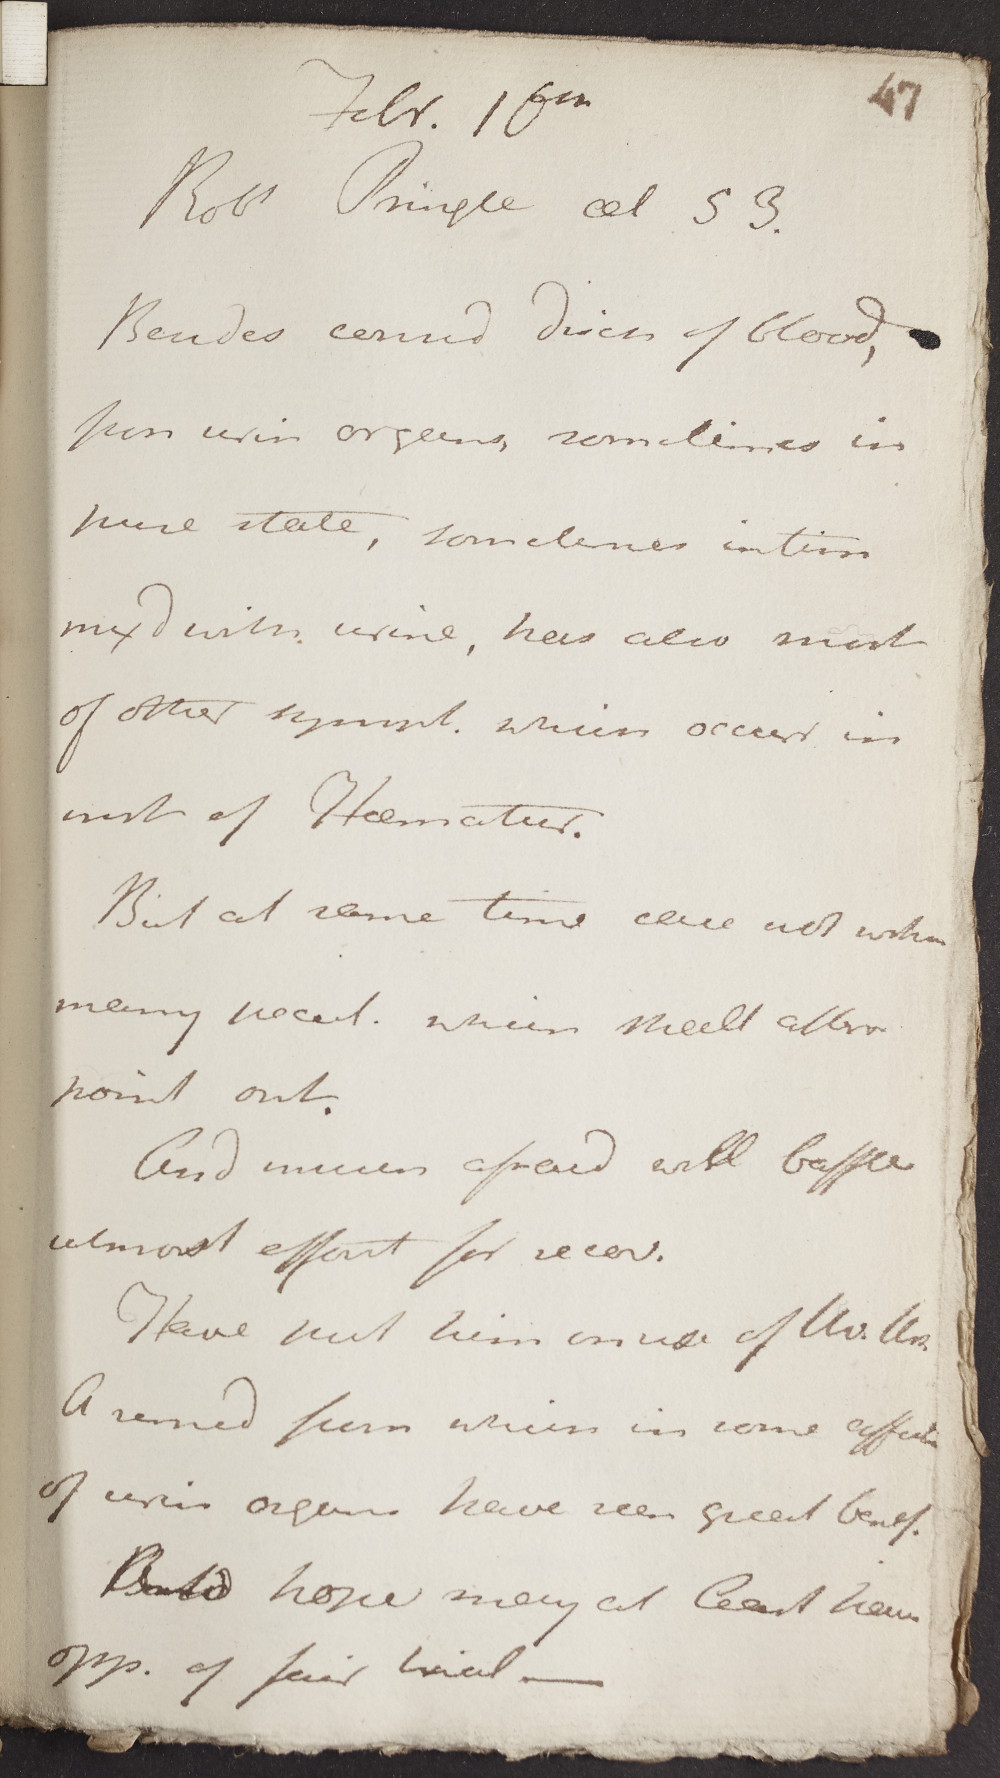 47
Febr. 16th
Robt Pringle aet 53.
Besides consid disch of blood,
from urin organs, sometimes in
pure state, sometimes intim
mixd with urine, has also most
of other sympt. which occur in
inst of Haematur.
But at same time case not withou
many pecul. which shall after
point out.
And much afraid will baffle
utmost effort for recov.
Have put him on use of Uv. Urs.
A remed from which in some affectio
of urin organs have seen great benef.
hope may at least have
opp. of fair trial —